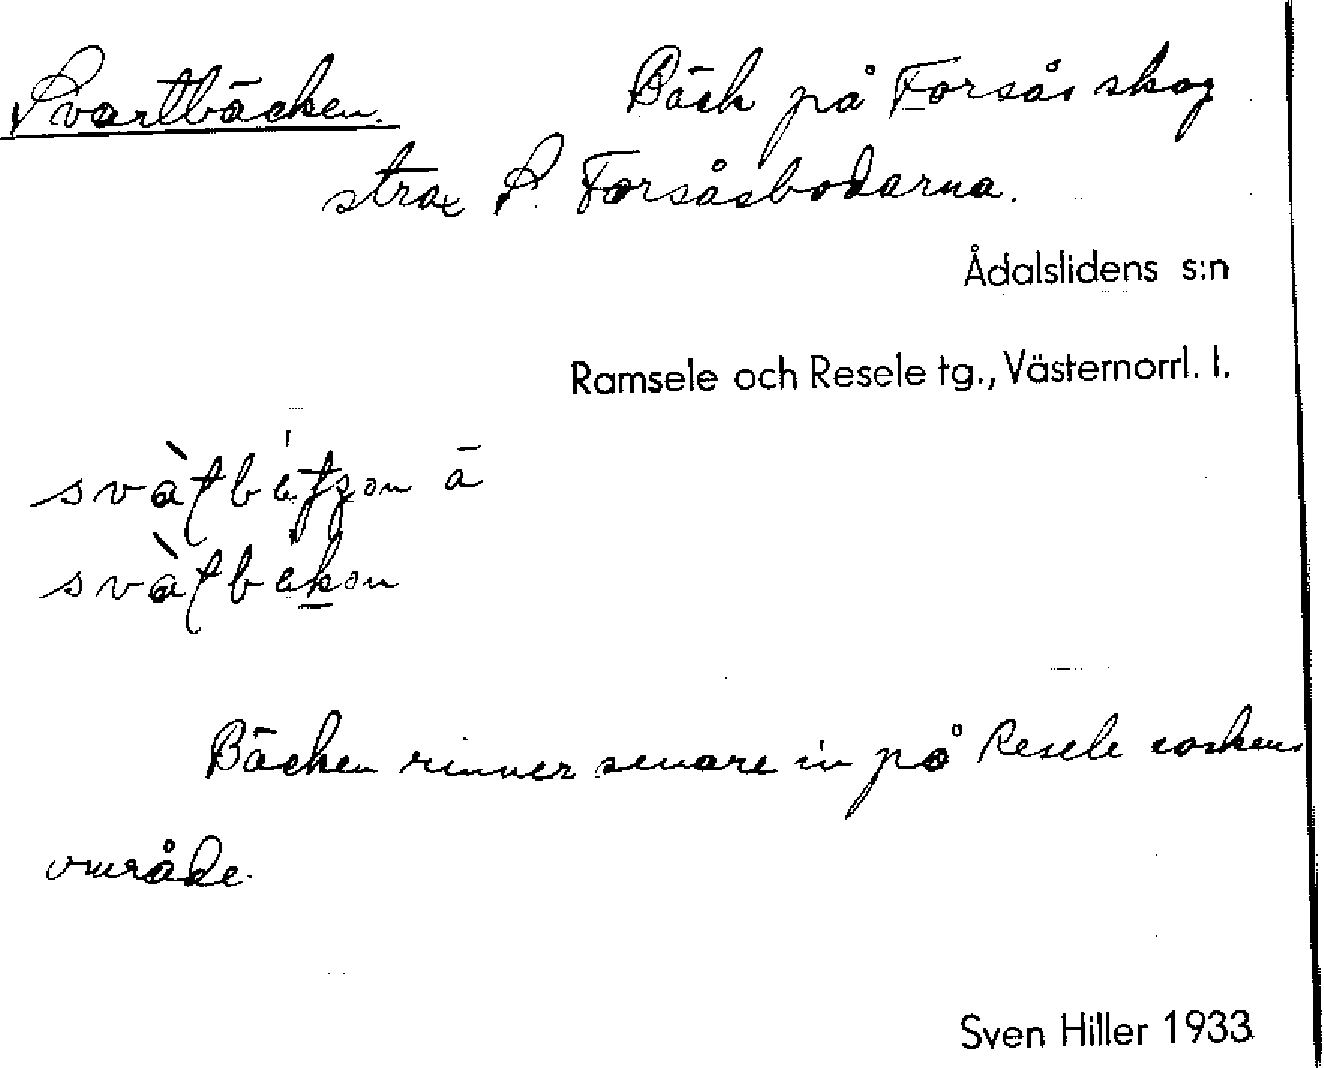 Svartbäcken. Bäck på Forsås skog
strax S. Forsåsbodarna.
Ådalslidens s:n
Ramsele och Resele tg., Västernorrl. l.
ä
Bäcken rinner senare in på Resele sockens
område.
Sven Hiller 1933